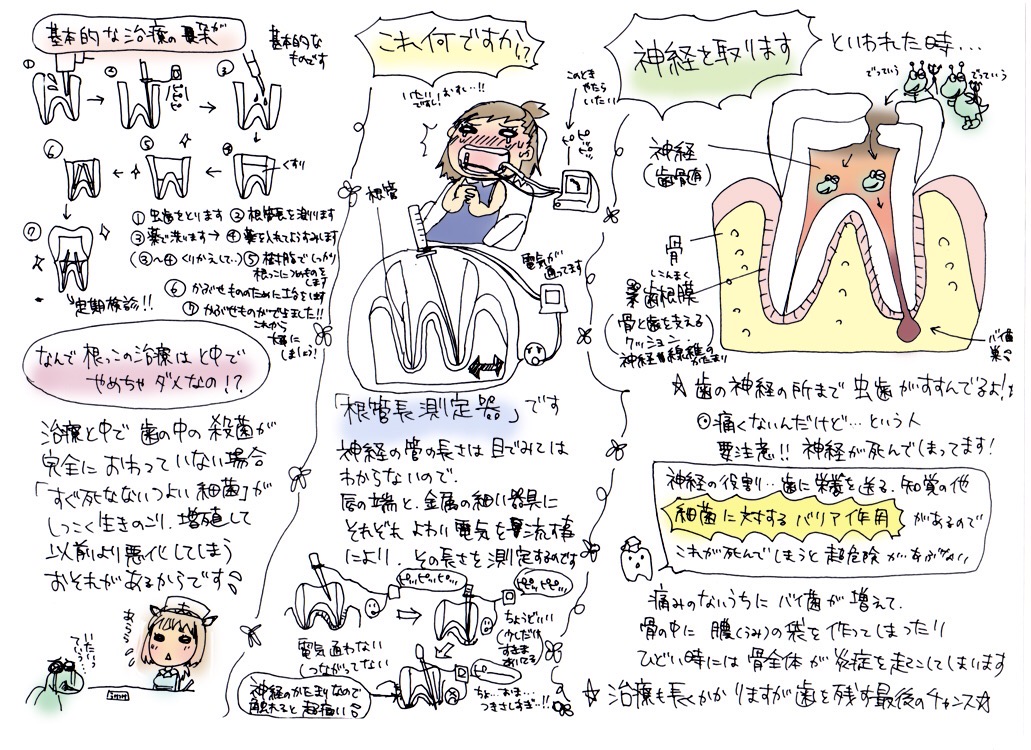 神経を取ります
といわれた時…
でっていう
でっていう
神経
(歯骨直)
骨
歯根膜
しこんまく
(骨と歯を支える
クッション
神経線維の
かたまり)
バイ菌
巣
☆歯の神経の所まで虫歯がすすんでるよ!
◎痛くないんだけど…という人
要注意!!神経が死んでしまってます!
神経の役割…歯に栄養を送る、知覚の他
細菌に対するバリア作用
があるので
これが死んでしまうと超危険
痛みのないうちにバイ菌が増えて、
骨の中に膿(うみ)の袋を作ってしまったり
ひどい時には骨全体が炎症を起こしてしまいます
☆治療も長くかかりますが歯を残す最後のチャンス☆
これ、何ですか!?
いたいですし!おすし…!!
このとき
やたら
いたい
ピピピッ
根管
電気が
通ってます
「根管長測定器」です
神経の管の長さは目でみては
わからないので、
唇の端と、金属の細い器具に
それぞれよわい電気を流す事
により、その長さを測定するのです
ピッピッピッ…
ピッピピッ…
電気通わない
(つながってない
ちょうどいい
(少しだけ
すきま
あいてる)
神経のかたまりなので
触れると超痛い
ピー
ちょ…おま…
つきさしすぎ…!!
基本的な治療の
基本的な
ものです
①
②
③
④
くすり
⑤
⑥
⑦
①虫歯をとります ②根管長を測ります
③薬で洗います→④薬を入れてようすみます
(③~④くりかえして…)⑤樹脂でしっかり
根っこにつめものを
します
⑥かぶせもののために土台をします
⑦かぶせものができました!!
これから
大事に
しましょ!
定期検診!!
なんで根っこの治療は途中で
やめちゃダメなの!?
治療途中で歯の中の殺菌が
完全におわっていない場合
「すぐ死なないつよい細菌」が
しつこく生きのこり、増殖して
以前より悪化してしまう
おそれがあるからです
あらう
いたいっていう…